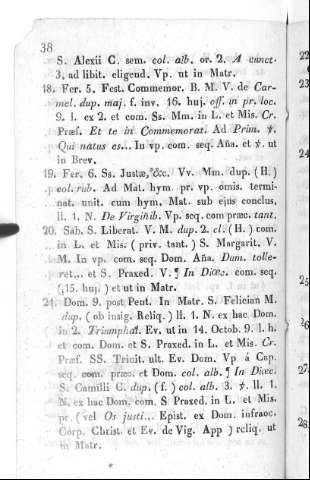 38
S. Alexii C. sem. col. alb. or. 2. A cunct.
3. ad libit. eligend. Vp. ut in Matr.
18. Fer. 5. Fest. Commemor. B. M. V. de Car-
mel. dup. maj. f. inv. 16. huj. off. in pr. loc.
9. l. ex 2. et com. Ss. Mm. in L. et Mis. Cr.
Præf. Et te in Commemorat. Ad Prim. ℣.
Qui natus es... In vp. com. seq. Aña. et ℣. ut
in Brev.
19. Fer. 6. Ss. Justæ, &c. Vv. Mm. dup. (H.)
col. rub. Ad Mat. hym. pr. vp. omis. termi-
nat. unit. cum hym. Mat. sub ejus conclus,
ll. 1. N. De Virginib. Vp. seq. com præc. tant.
20. Sab. S. Liberat. V. M. dup. 2. cl. (H.) com.
in L. et Mis. (priv. tant.) S. Margarit. V.
M. In vp. com. seq. Dom. Aña. Dum. tolle-
ret... et S. Praxed. V. ¶ In Diœc. com. seq.
(15. huj.) et ut in Matr.
21. Dom. 9. post Pent. In Matr. S. Felician M.
dup. (ob insig. Reliq.) ll. 1. N. ex hac Dom.
in 2. Triumphal. Ev. ut in 14. Octob. 9. l. h.
et com. Dom. et S. Praxed. in L. et Mis. Cr.
Præf. SS. Trinit. ult. Ev. Dom. Vp á Cap.
seq. com. præc. et Dom. col. alb. ¶ In Diœc.
S. Camilli C. dup. (f.) col. alb. 3. ℣. ll. 1.
N. ex hac Dom. com. S Praxed. in L. et Mis.
pr. (vel Os justi... Epist. ex Dom. infraoc.
Corp. Christ. et Ev. de Vig. App) reliq. ut
in Matr.